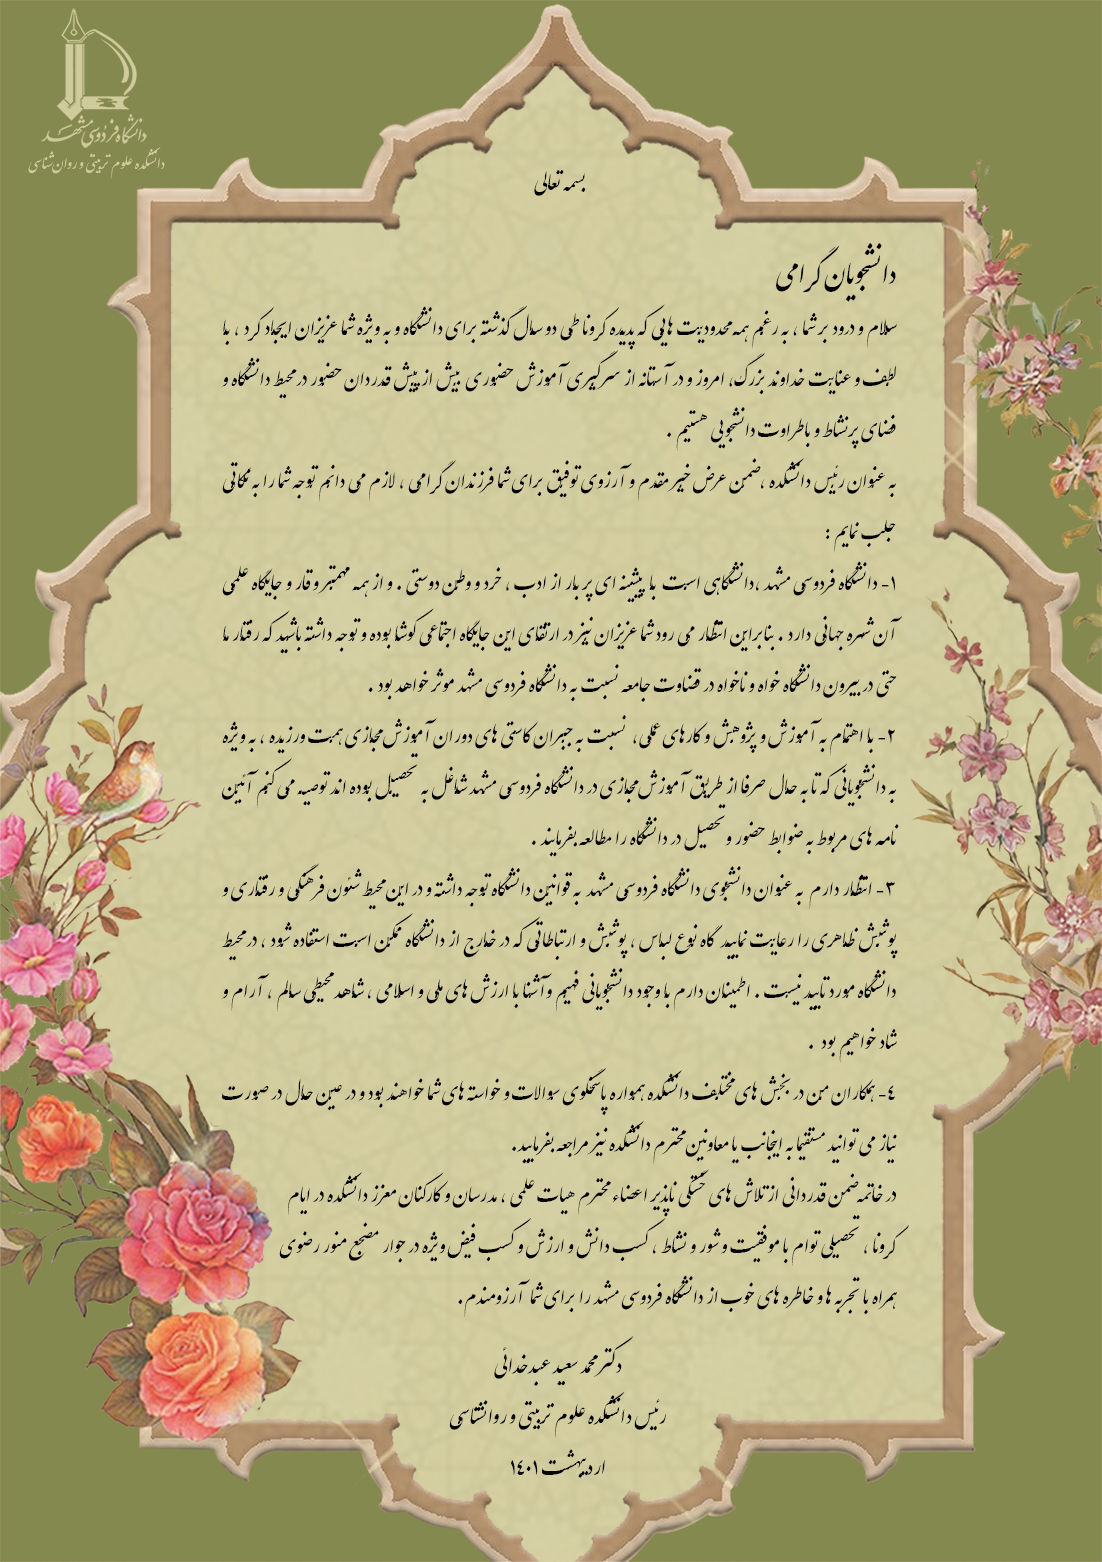 دانشگاه فردوسی مشهد
دانشکده علوم تربیتی و روان‌شناسی
بسمه تعالی
دانشجویان گرامی
سلام و درود بر شما ، به رغم همه محدودیت هایی که پدیده کرونا طی دو سال گذشته برای دانشگاه و به ویژه شما عزیزان ایجاد کرد ، با
لطف و عنایت خداوند بزرگ، امروز و در آستانه از سرگیری آموزش حضوری بیش از پیش قدردان حضور در محیط دانشگاه و
فضای پرنشاط و باطراوت دانشجویی هستیم .
به عنوان رئیس دانشکده ،ضمن عرض خیر مقدم و آرزوی توفیق برای شما فرزندان گرامی ، لازم می دانم توجه شما را به نکاتی
جلب نمایم :
۱- دانشگاه فردوسی مشهد ،دانشگاهی است با پیشینه ای پر بار از ادب ، خرد و وطن دوستی . و از همه مهمتر وقار و جایگاه علمی
آن شهره جهانی دارد . بنابراین انتظار می رود شما عزیزان نیز در ارتقای این جایگاه اجتماعی کوشا بوده و توجه داشته باشید که رفتار ما
حتی در بیرون دانشگاه خواه و ناخواه در قضاوت جامعه نسبت به دانشگاه فردوسی مشهد موثر خواهد بود .
۲- با اهتمام به آموزش و پژوهش و کار های عملی، نسبت به جبران کاستی های دوران آموزش مجازی همت ورزیده ، به ویژه
به دانشجویانی که تا به حال صرفا از طریق آموزش مجازی در دانشگاه فردوسی مشهد شاغل به تحصیل بوده اند توصیه می کنم آئین
نامه های مربوط به ضوابط حضور و تحصیل در دانشگاه را مطالعه بفرمایند .
۳- انتظار دارم به عنوان دانشجوی دانشگاه فردوسی مشهد به قوانین دانشگاه توجه داشته و در این محیط شئون فرهنگی و رفتاری و
پوشش ظاهری را رعایت نمایید گاه نوع لباس ، پوشش و ارتباطاتی که در خارج از دانشگاه ممکن است استفاده شود ، در محیط
دانشگاه مورد تایید نیست . اطمینان دارم با وجود دانشجویانی فهیم و آشنا با ارزش های ملی و اسلامی ، شاهد محیطی سالم ، آرام و
شاد خواهیم بود .
٤- همکاران من در بخش های مختلف دانشکده همواره پاسخگوی سوالات و خواسته های شما خواهند بود و در عین حال در صورت
نیاز می توانید مستقیما به اینجانب یا معاونین محترم دانشکده نیز مراجعه بفرمایید.
در خاتمه ضمن قدردانی از تلاش های خستگی ناپذیر اعضاء محترم هیات علمی ، مدرسان و کارکنان معزز دانشکده در ایام
کرونا ، تحصیلی توام با موفقیت و شور و نشاط ، کسب دانش و ارزش و کسب فیض ویژه در جوار مضجع منور رضوی
همراه با تجربه ها و خاطره های خوب از دانشگاه فردوسی مشهد را برای شما آرزومندم.
دکتر محمد سعید عبدخدائی
رئیس دانشکده علوم تربیتی و روانشناسی
اردیبهشت ۱٤۰۱